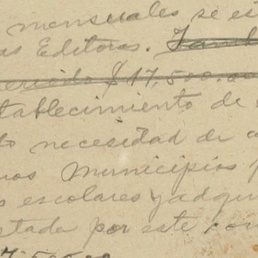 mensuales se es
as Editoras. Tamb
$17,500.00
tablecimiento de
to necesidad de
nos Municipios
s escolares y adqui
etada por este con
7,500.00